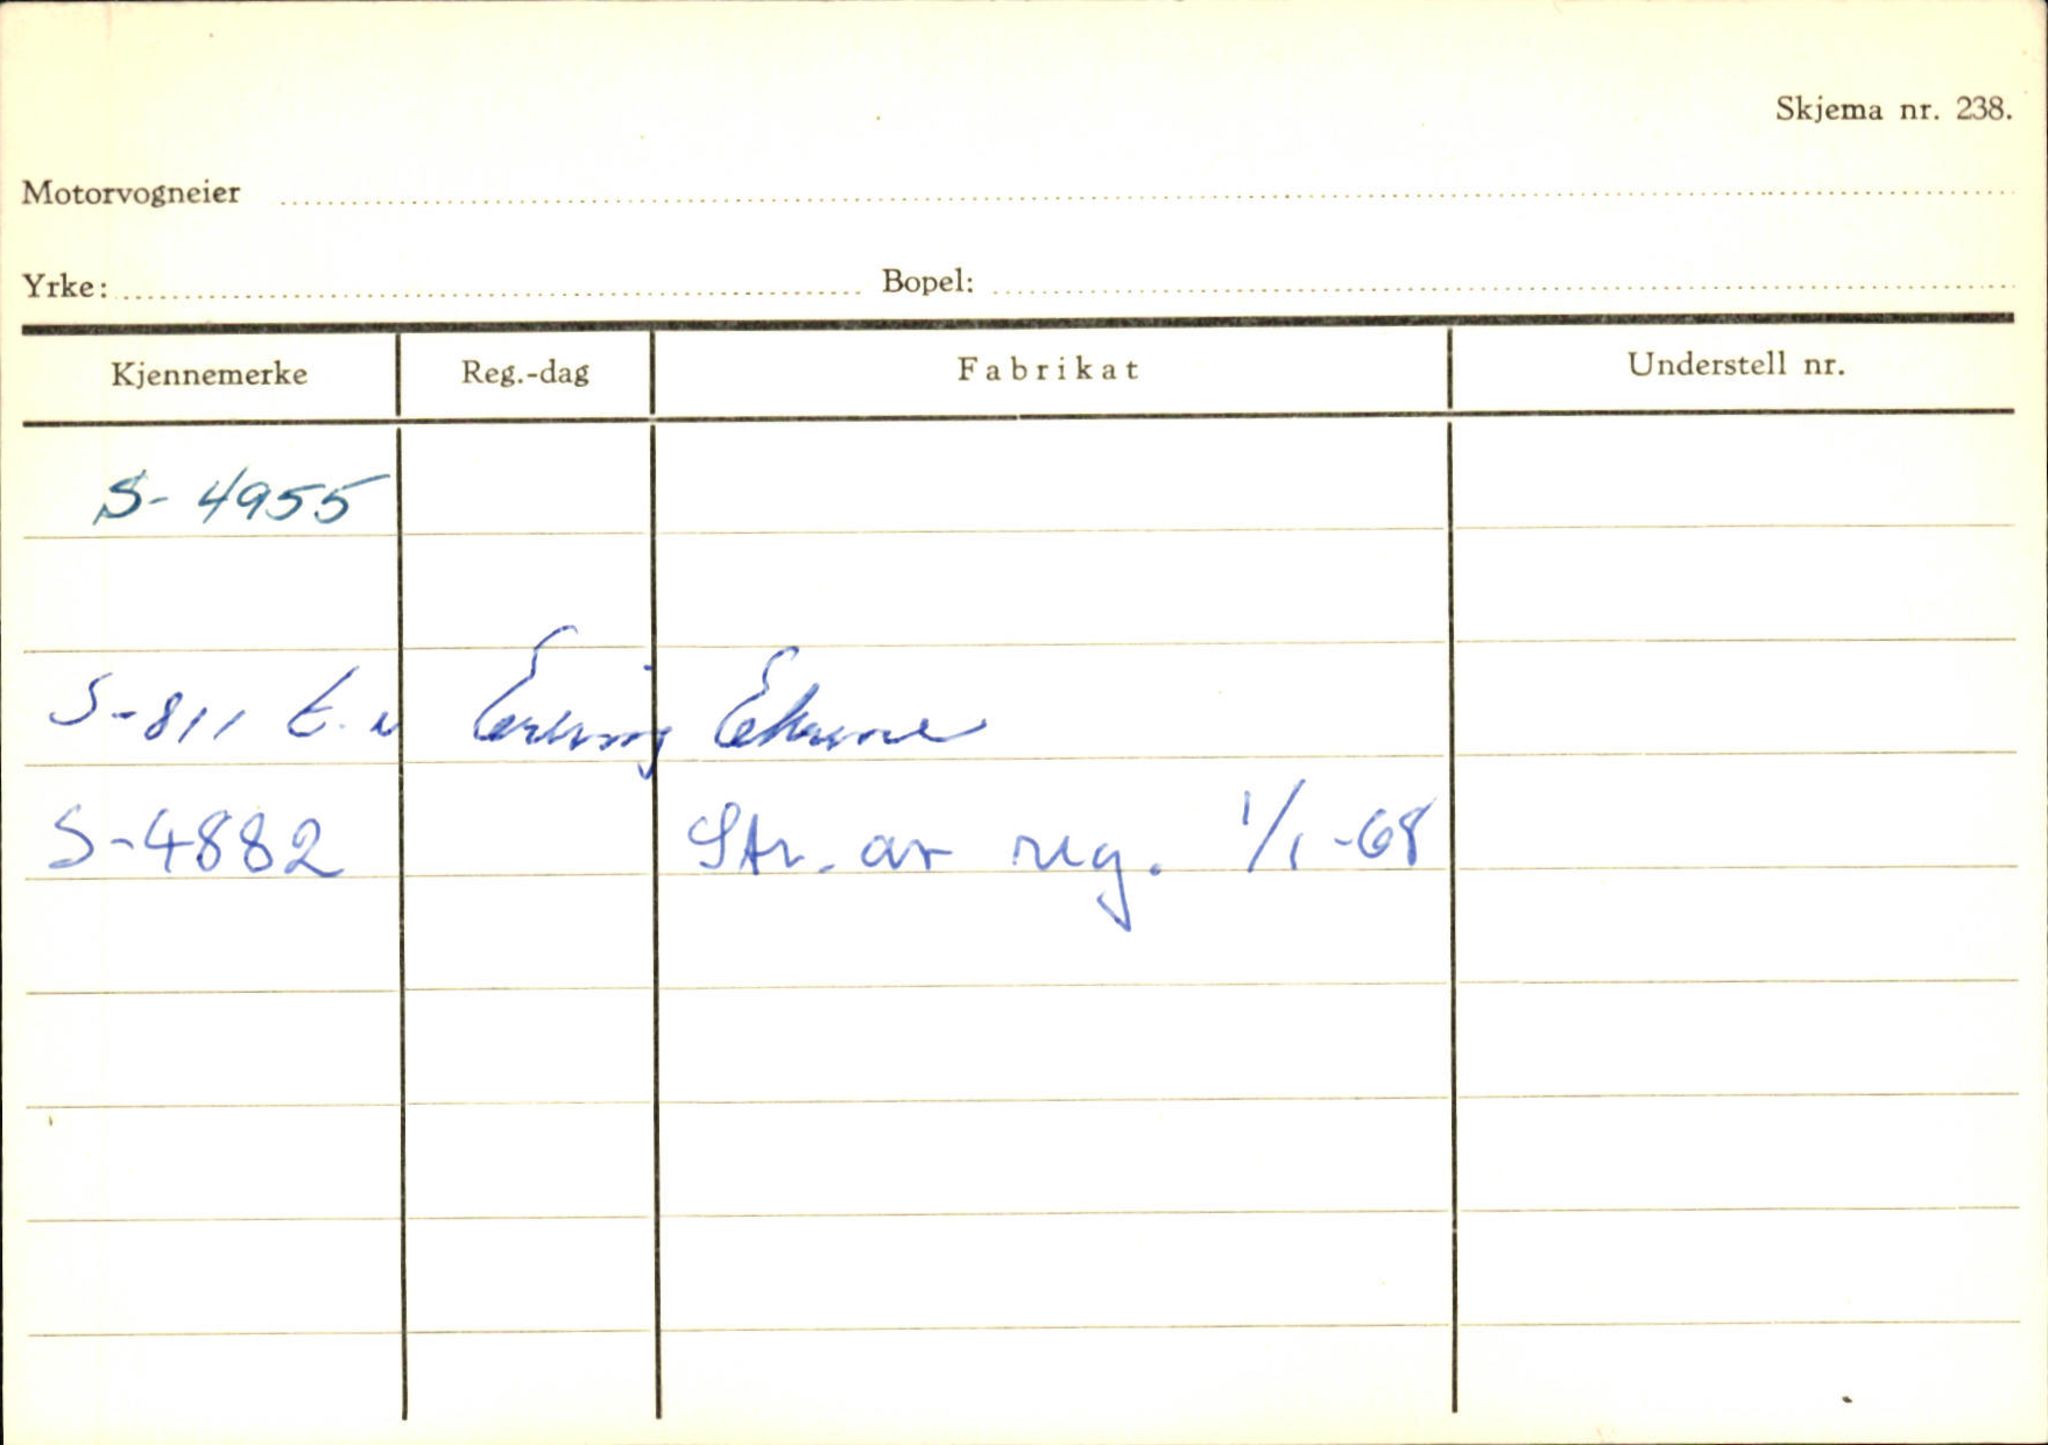 Skjema nr. 238.
Motorvogneier
Yrke: Bopel:
Kjennemerke Reg.-dag Fabrikat Understell nr.
S-4955
S-811 t.n Erling
S-4882 Str. av reg. 1/1-68